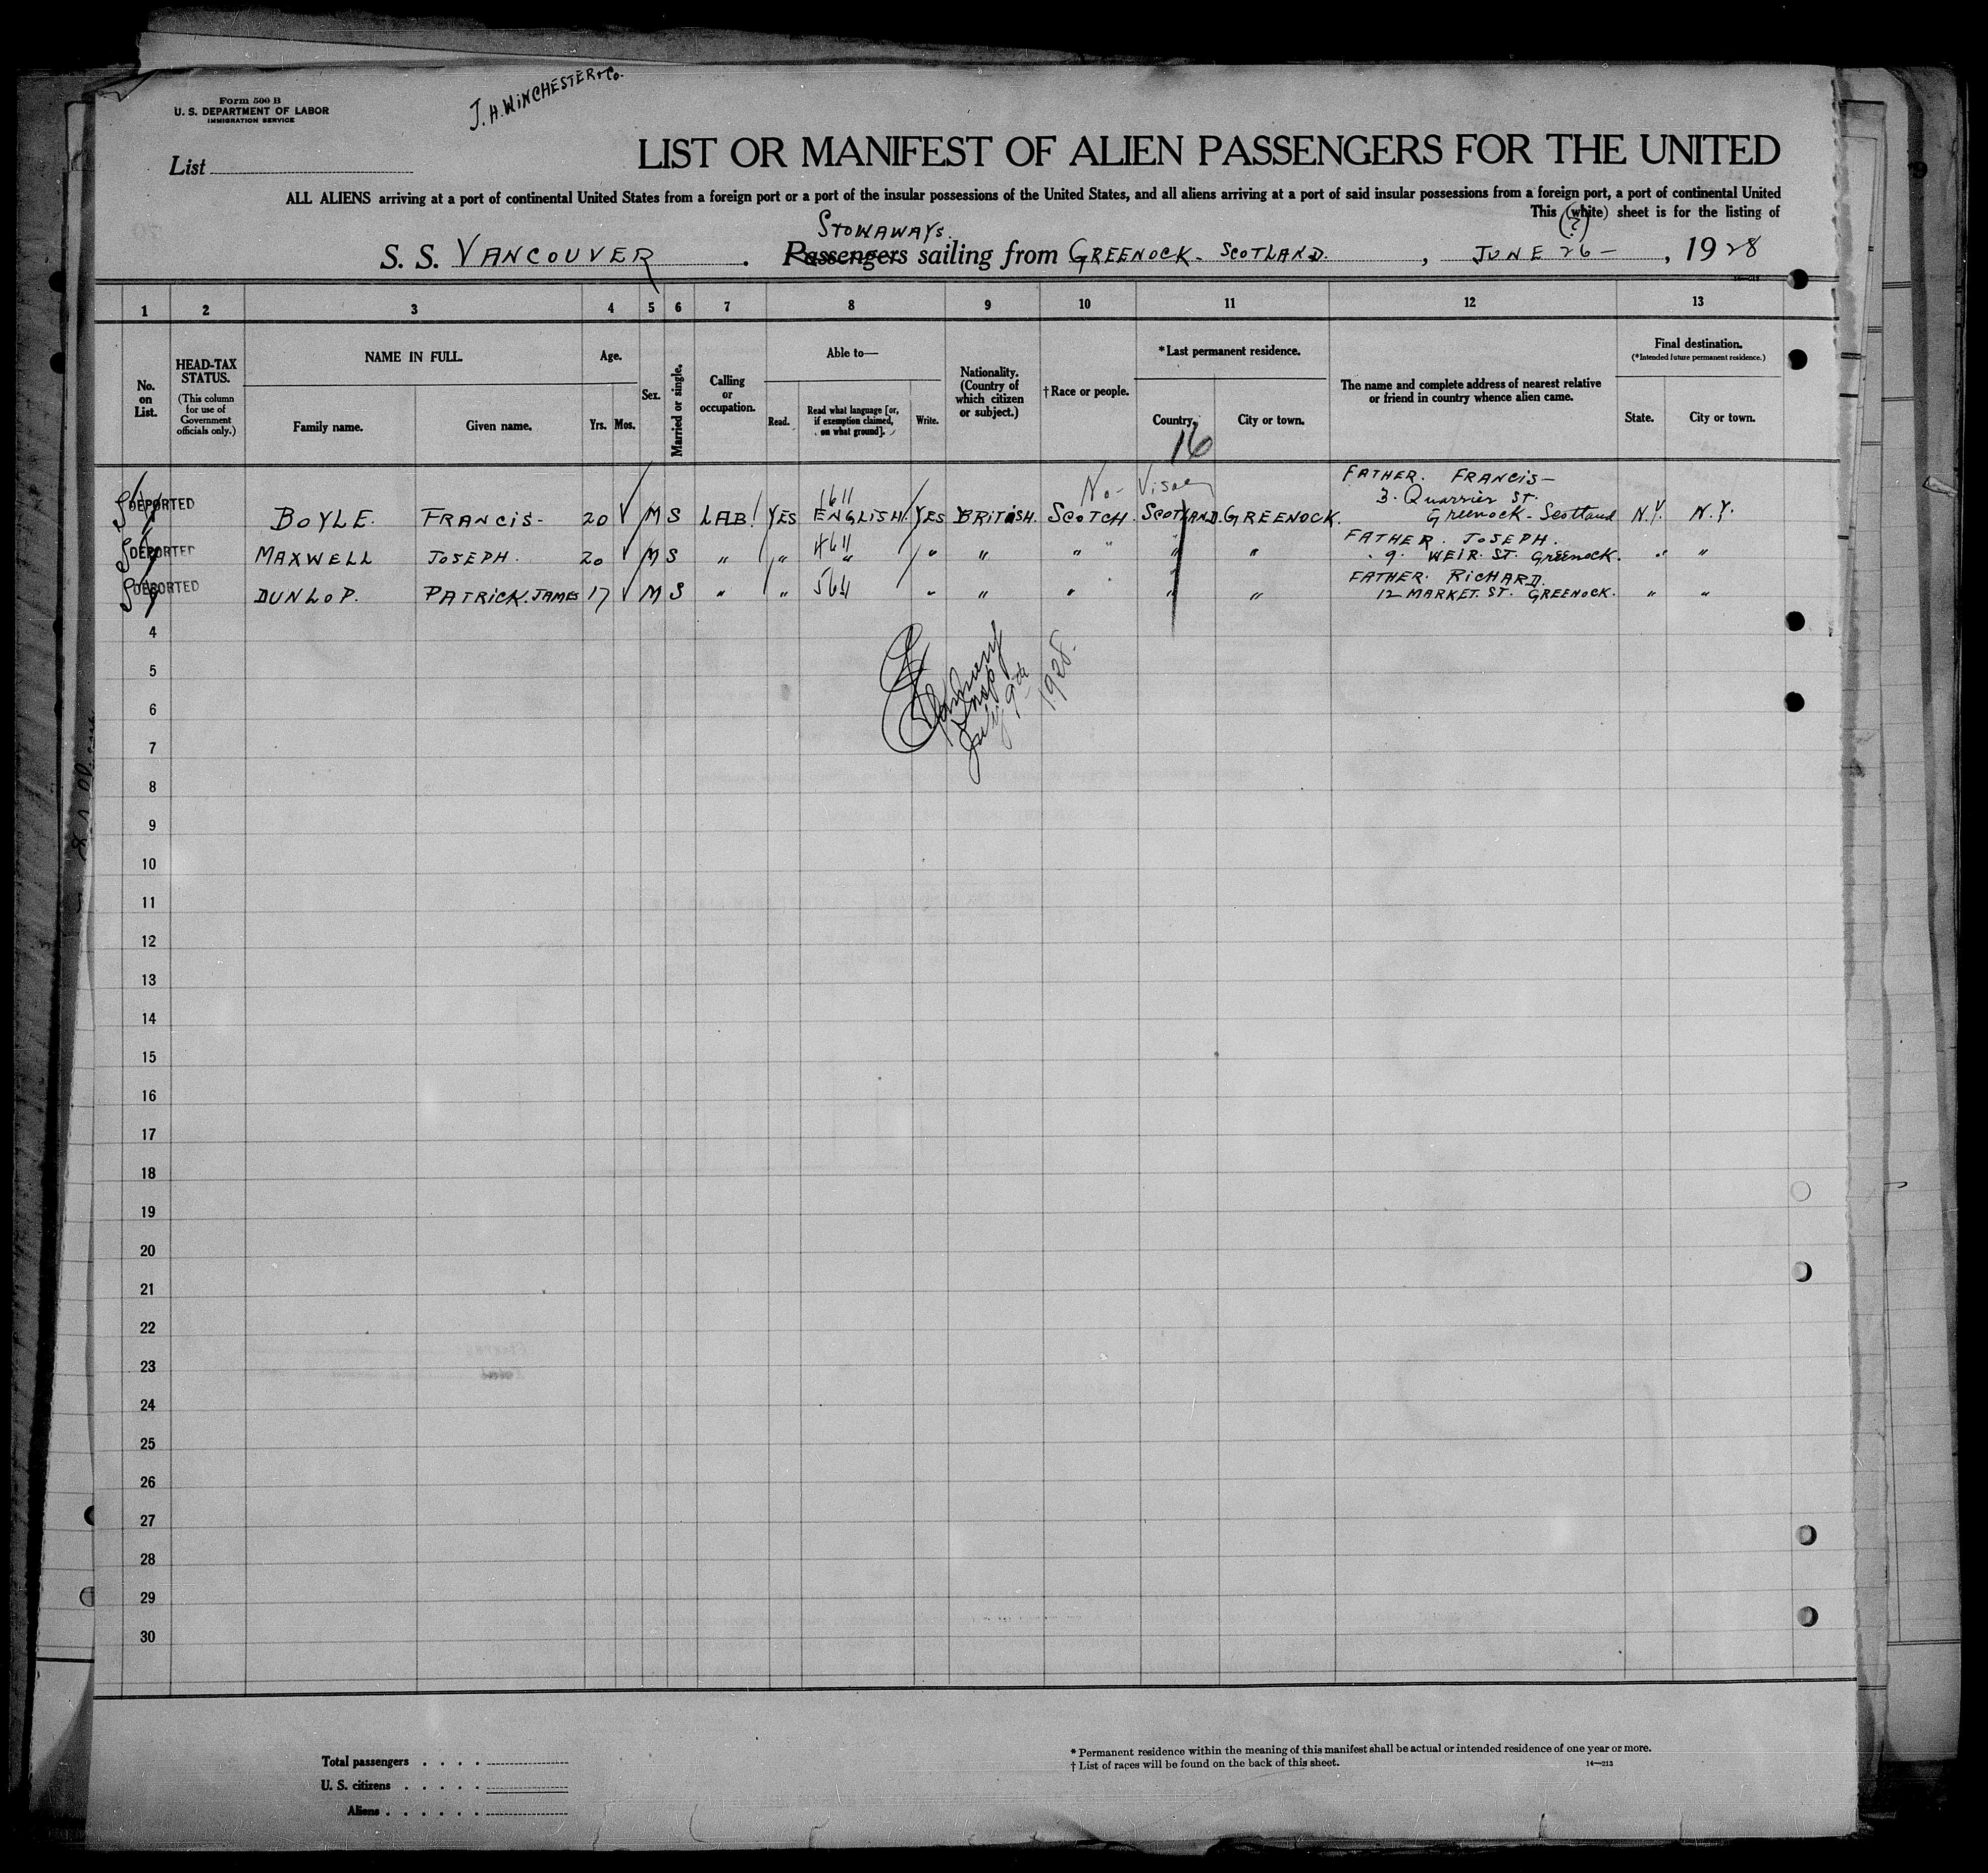 Form 500 B
U. S. DEPARTMENT OF LABOR
IMMIGRATION SERVICE
J. H. WINCHESTER & Co.
List
LIST OR MANIFEST OF ALIEN PASSENGERS FOR THE UNITED
ALL ALIENS arriving at a port of continental United States from a foreign port or a port of the insular possessions of the United States, and all aliens arriving at a port of said insular possessions from a foreign port, a port of continental United
This (white) sheet is for the listing of
(?)
STOWAWAYS.
S. S. VANCOUVER . Passengers sailing from GREENOCK - SCOTLAND. , JUNE 26 - , 1928
1 2 3 4 5 6 7 8 9 10 11 12 13
No. on List.
HEAD-TAX STATUS. (This column for use of Government officials only.)
NAME IN FULL.
Family name. Given name.
Age.
Yrs. Mos.
Sex.
Married or single.
Calling or occupation.
Able to—
Read. Read what language [or, if exemption claimed, on what ground]. Write.
Nationality. (Country of which citizen or subject.)
†Race or people.
*Last permanent residence.
Country. City or town.
16
The name and complete address of nearest relative or friend in country whence alien came.
Final destination.
(*Intended future permanent residence.)
State. City or town.
No - Visae
FATHER. FRANCIS -
3. Quarrier ST.
1611
DEPORTED BOYLE. FRANCIS - 20 M S LAB. YES ENGLISH. YES BRITISH. SCOTCH. SCOTLAND. GREENOCK. Greenock - Scotland N.Y. N.Y.
FATHER. JOSEPH.
4611
DEPORTED MAXWELL JOSEPH. 20 M S " " " " " " " " 9. WEIR. ST. Greenock. " "
FATHER. RICHARD.
DEPORTED DUNLOP. PATRICK. JAMES 17 M S " " 5611 " " " " " 12 MARKET. ST. GREENOCK. " "
4
5
Insp
July 9th 1928.
6
7
8
9
10
11
12
13
14
15
16
17
18
19
20
21
22
23
24
25
26
27
28
29
30
Total passengers . . . .
U. S. citizens . . . . .
Aliens . . . . . .
* Permanent residence within the meaning of this manifest shall be actual or intended residence of one year or more.
† List of races will be found on the back of this sheet.
14—213